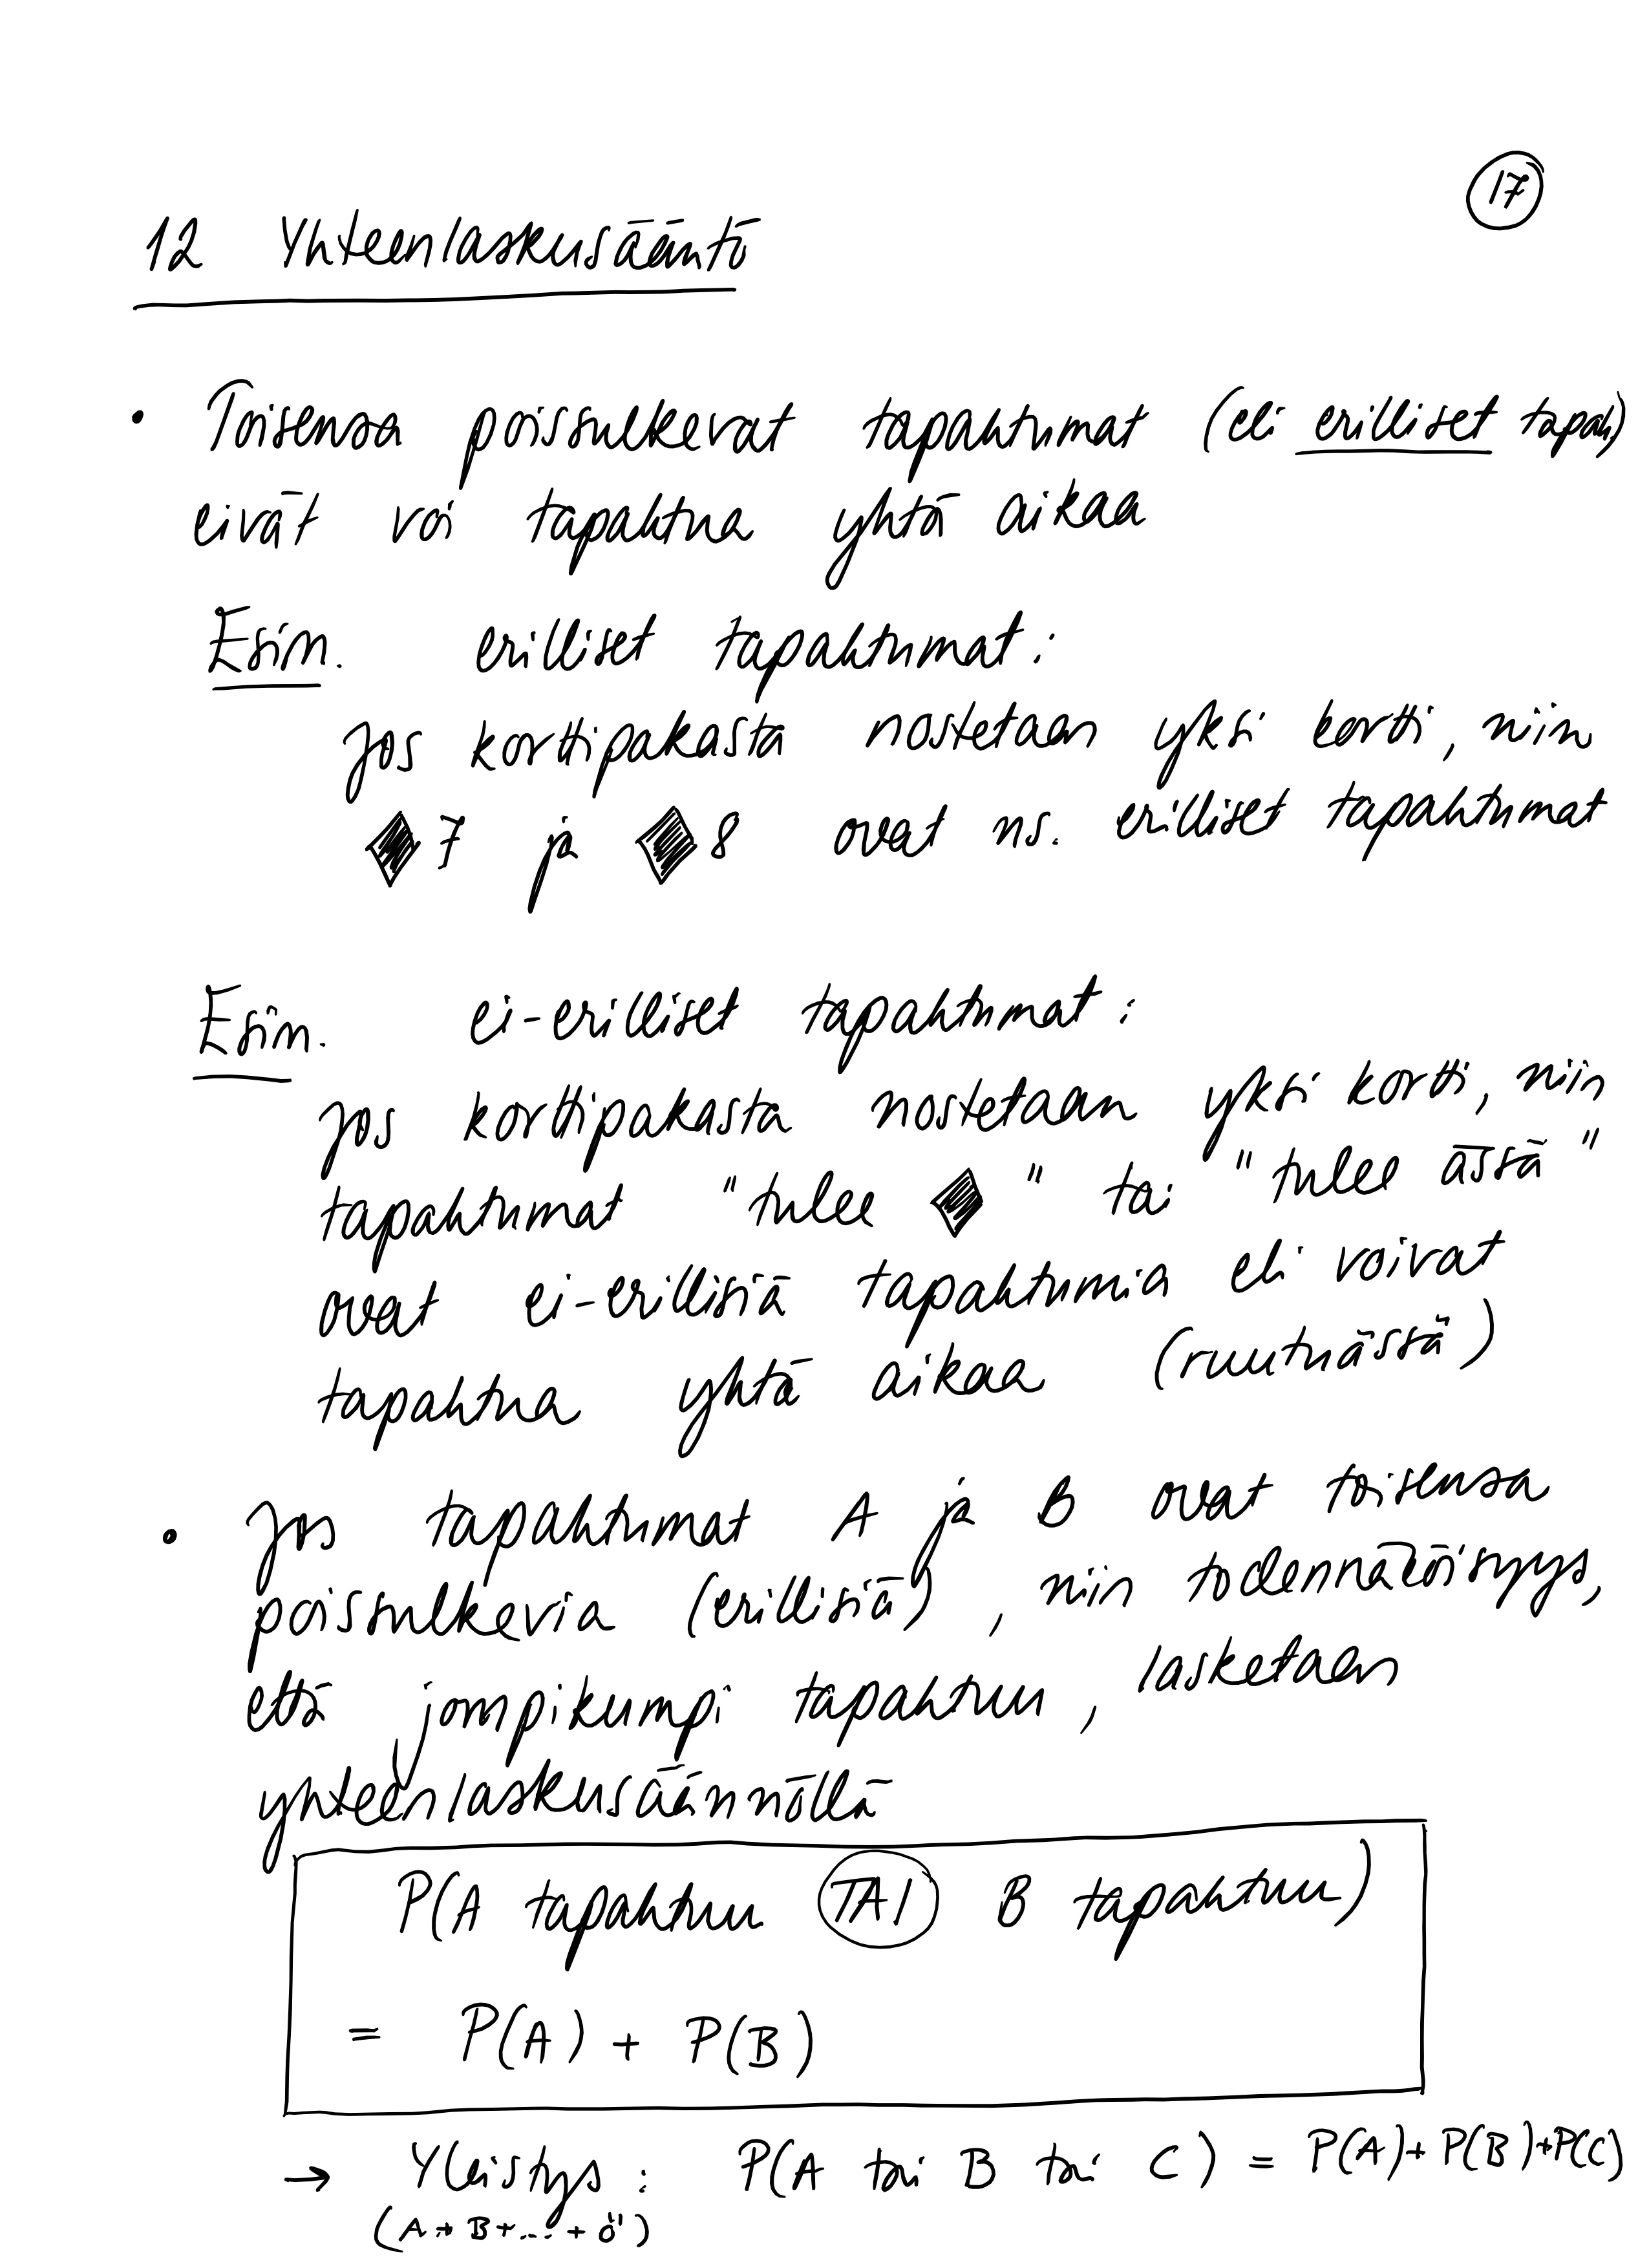 17
12 Yhteenlaskusääntö
• Toisensa poissulkevat tapahtumat (eli erilliset tapah)
eivät voi tapahtua yhtä aikaa
Esim. erilliset tapahtumat:
Jos korttipakasta nostetaan yksi kortti, niin
♦7 ja ♦8 ovat ns. erilliset tapahtumat
Esim. ei-erilliset tapahtumat:
Jos korttipakasta nostetaan yksi kortti, niin
tapahtumat "tulee ♦" tai "tulee ässä"
ovat ei-erillisiä tapahtumia eli voivat
tapahtua yhtä aikaa (ruutuässä)
• Jos tapahtumat A ja B ovat toisensa
poissulkevia (erillisiä), niin todennäköisyys,
että jompikumpi tapahtuu, lasketaan
yhteenlaskusäännöllä
P(A tapahtuu TAI B tapahtuu)
= P(A) + P(B)
→ Yleistys: P(A tai B tai C) = P(A) + P(B) + P(C)
(A + B + ... + Ö")